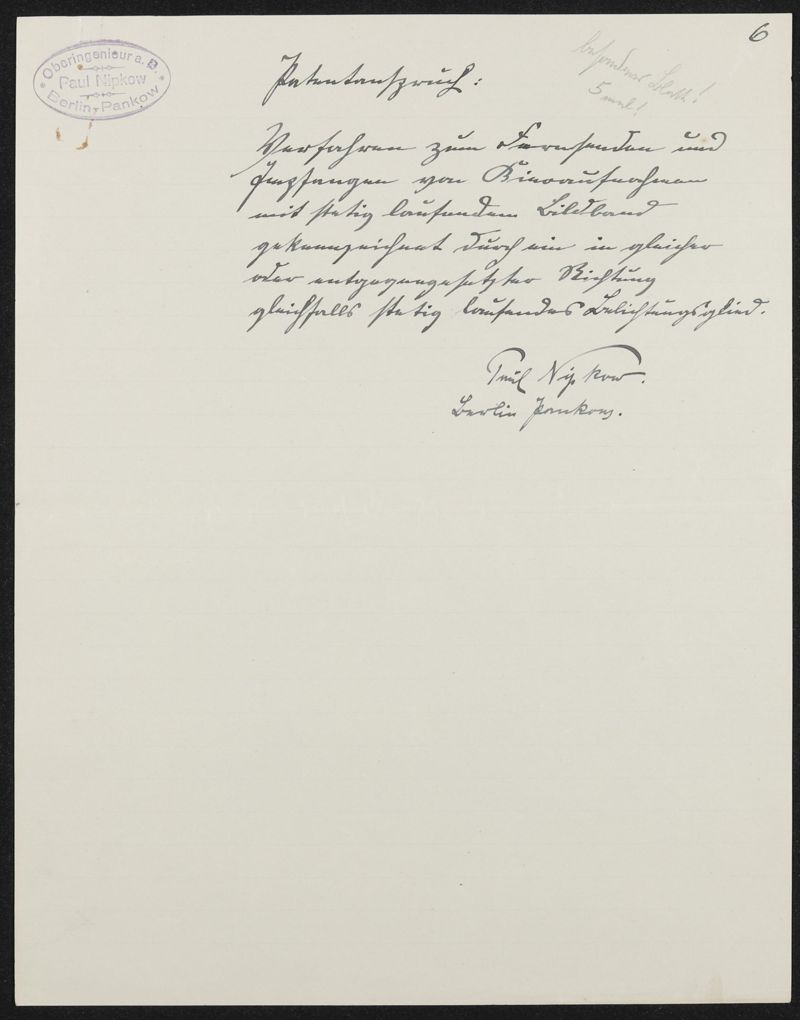 6
Oberingenieur a. D.
Paul Nipkow
Berlin-Pankow
besonderes Blatt!
5 mal!
Patentanspruch:
Verfahren zum Fernsenden und
Empfangen von Kinoaufnahmen
mit stetig laufendem Bildband
gekennzeichnet durch ein in gleicher
oder entgegengesetzter Richtung
gleichfalls stetig laufendes Belichtungsglied.
Paul Nipkow.
Berlin Pankow.